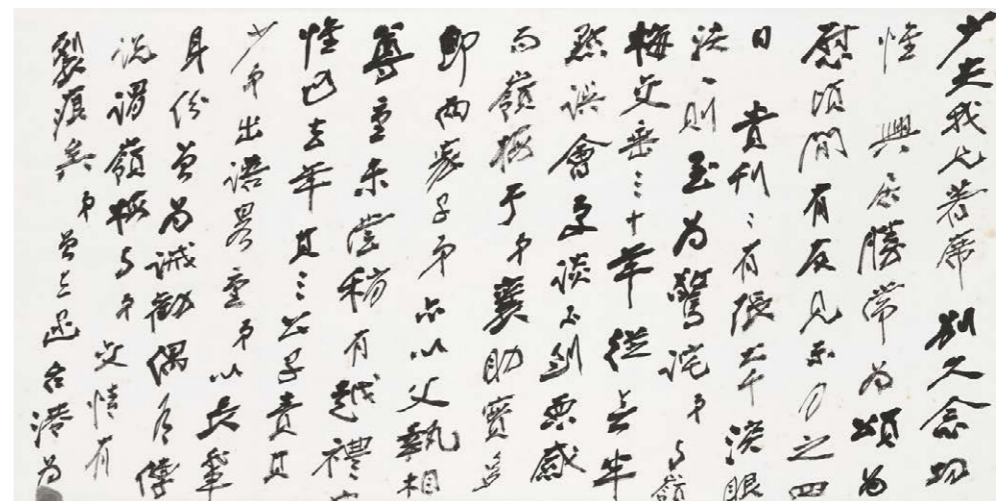 少夫我兄著席 別久念切
惟 興居勝常為頌為
慰頃間有友見示月之四
日 貴刊ミ有張大千潑眼
法ミ則至為驚詫弟与嶺
梅交垂三十年從無半
點誤會更談不到惡感
而嶺梅于弟襄助實多
即兩家子弟亦以父執相
尊重未嘗稍有越禮
惟 去年其三公子責其
少弟出語畧重弟以長輩
身份曾為誡勸偶有傳
說謂嶺梅与弟 交情有
裂痕矣弟曾 函台港為